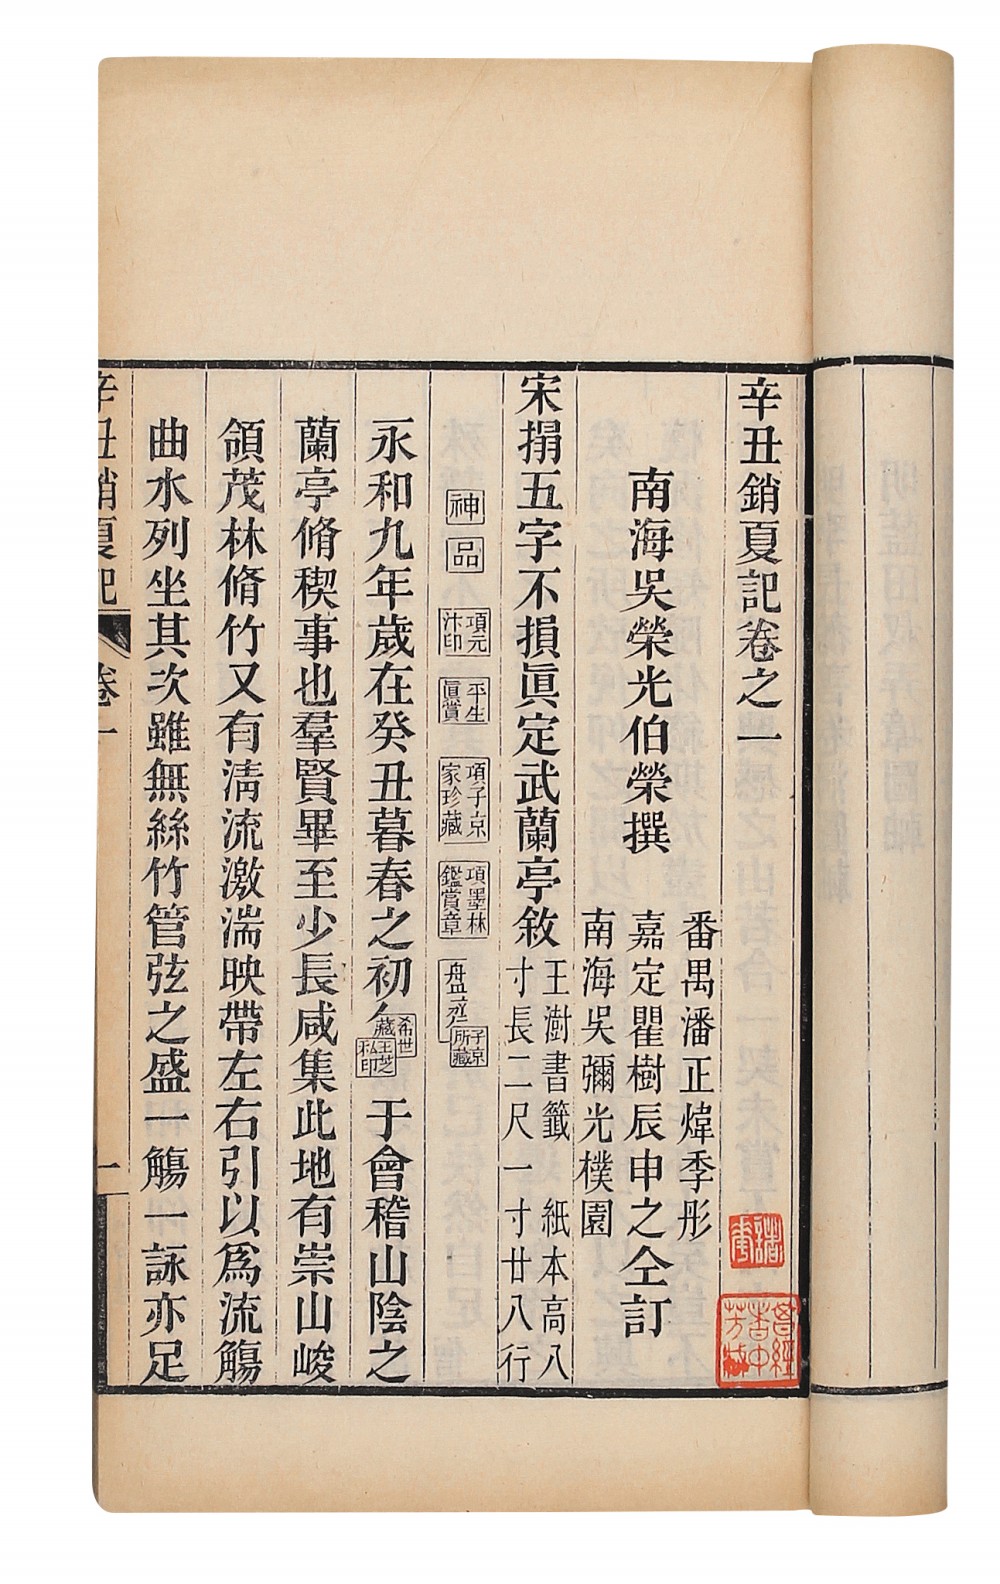 辛丑銷夏記卷之一
南海吳榮光伯榮撰
番禺潘正煒季彤
嘉定瞿樹辰申之仝訂
南海吳彌光樸園
宋搨五字不損眞定武蘭亭敘
王澍書籤 紙本高八
寸長二尺一寸廿八行
神
品
項元
汴印
平生
眞賞
項子京
家珍藏
項墨林
鑑賞章
子京
所藏
永和九年歲在癸丑暮春之初
希世
藏
王芝
私印
于會稽山陰之
蘭亭脩稧事也羣賢畢至少長咸集此地有崇山峻
領茂林脩竹又有淸流激湍映帶左右引以爲流觴
曲水列坐其次雖無絲竹管弦之盛一觴一詠亦足
辛丑銷夏記 卷一 一